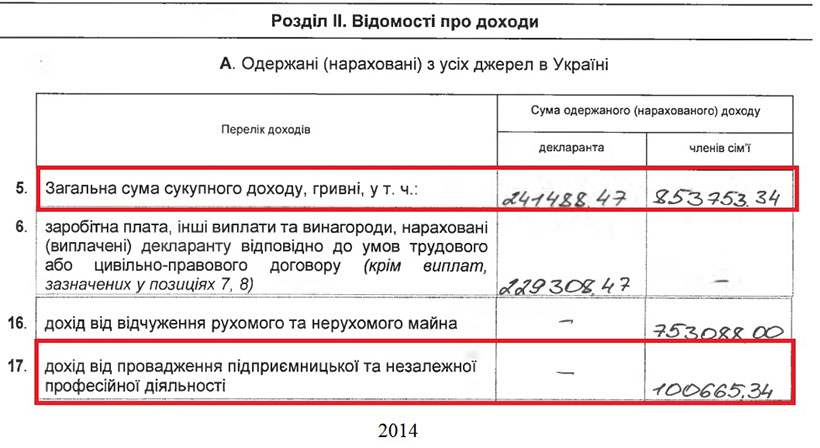 Розділ II. Відомості про доходи
А. Одержані (нараховані) з усіх джерел в Україні
Перелік доходів
Сума одержаного (нарахованого) доходу
декларанта
членів сім'ї
5. Загальна сума сукупного доходу, гривні, у т. ч.: 241488.47 853753.34
6. заробітна плата, інші виплати та винагороди, нараховані
(виплачені) декларанту відповідно до умов трудового
або цивільно-правового договору (крім виплат,
зазначених у позиціях 7, 8) 229308,47 –
16. дохід від відчуження рухомого та нерухомого майна – 753088.00
17. дохід від провадження підприємницької та незалежної
професійної діяльності – 100665,34
2014